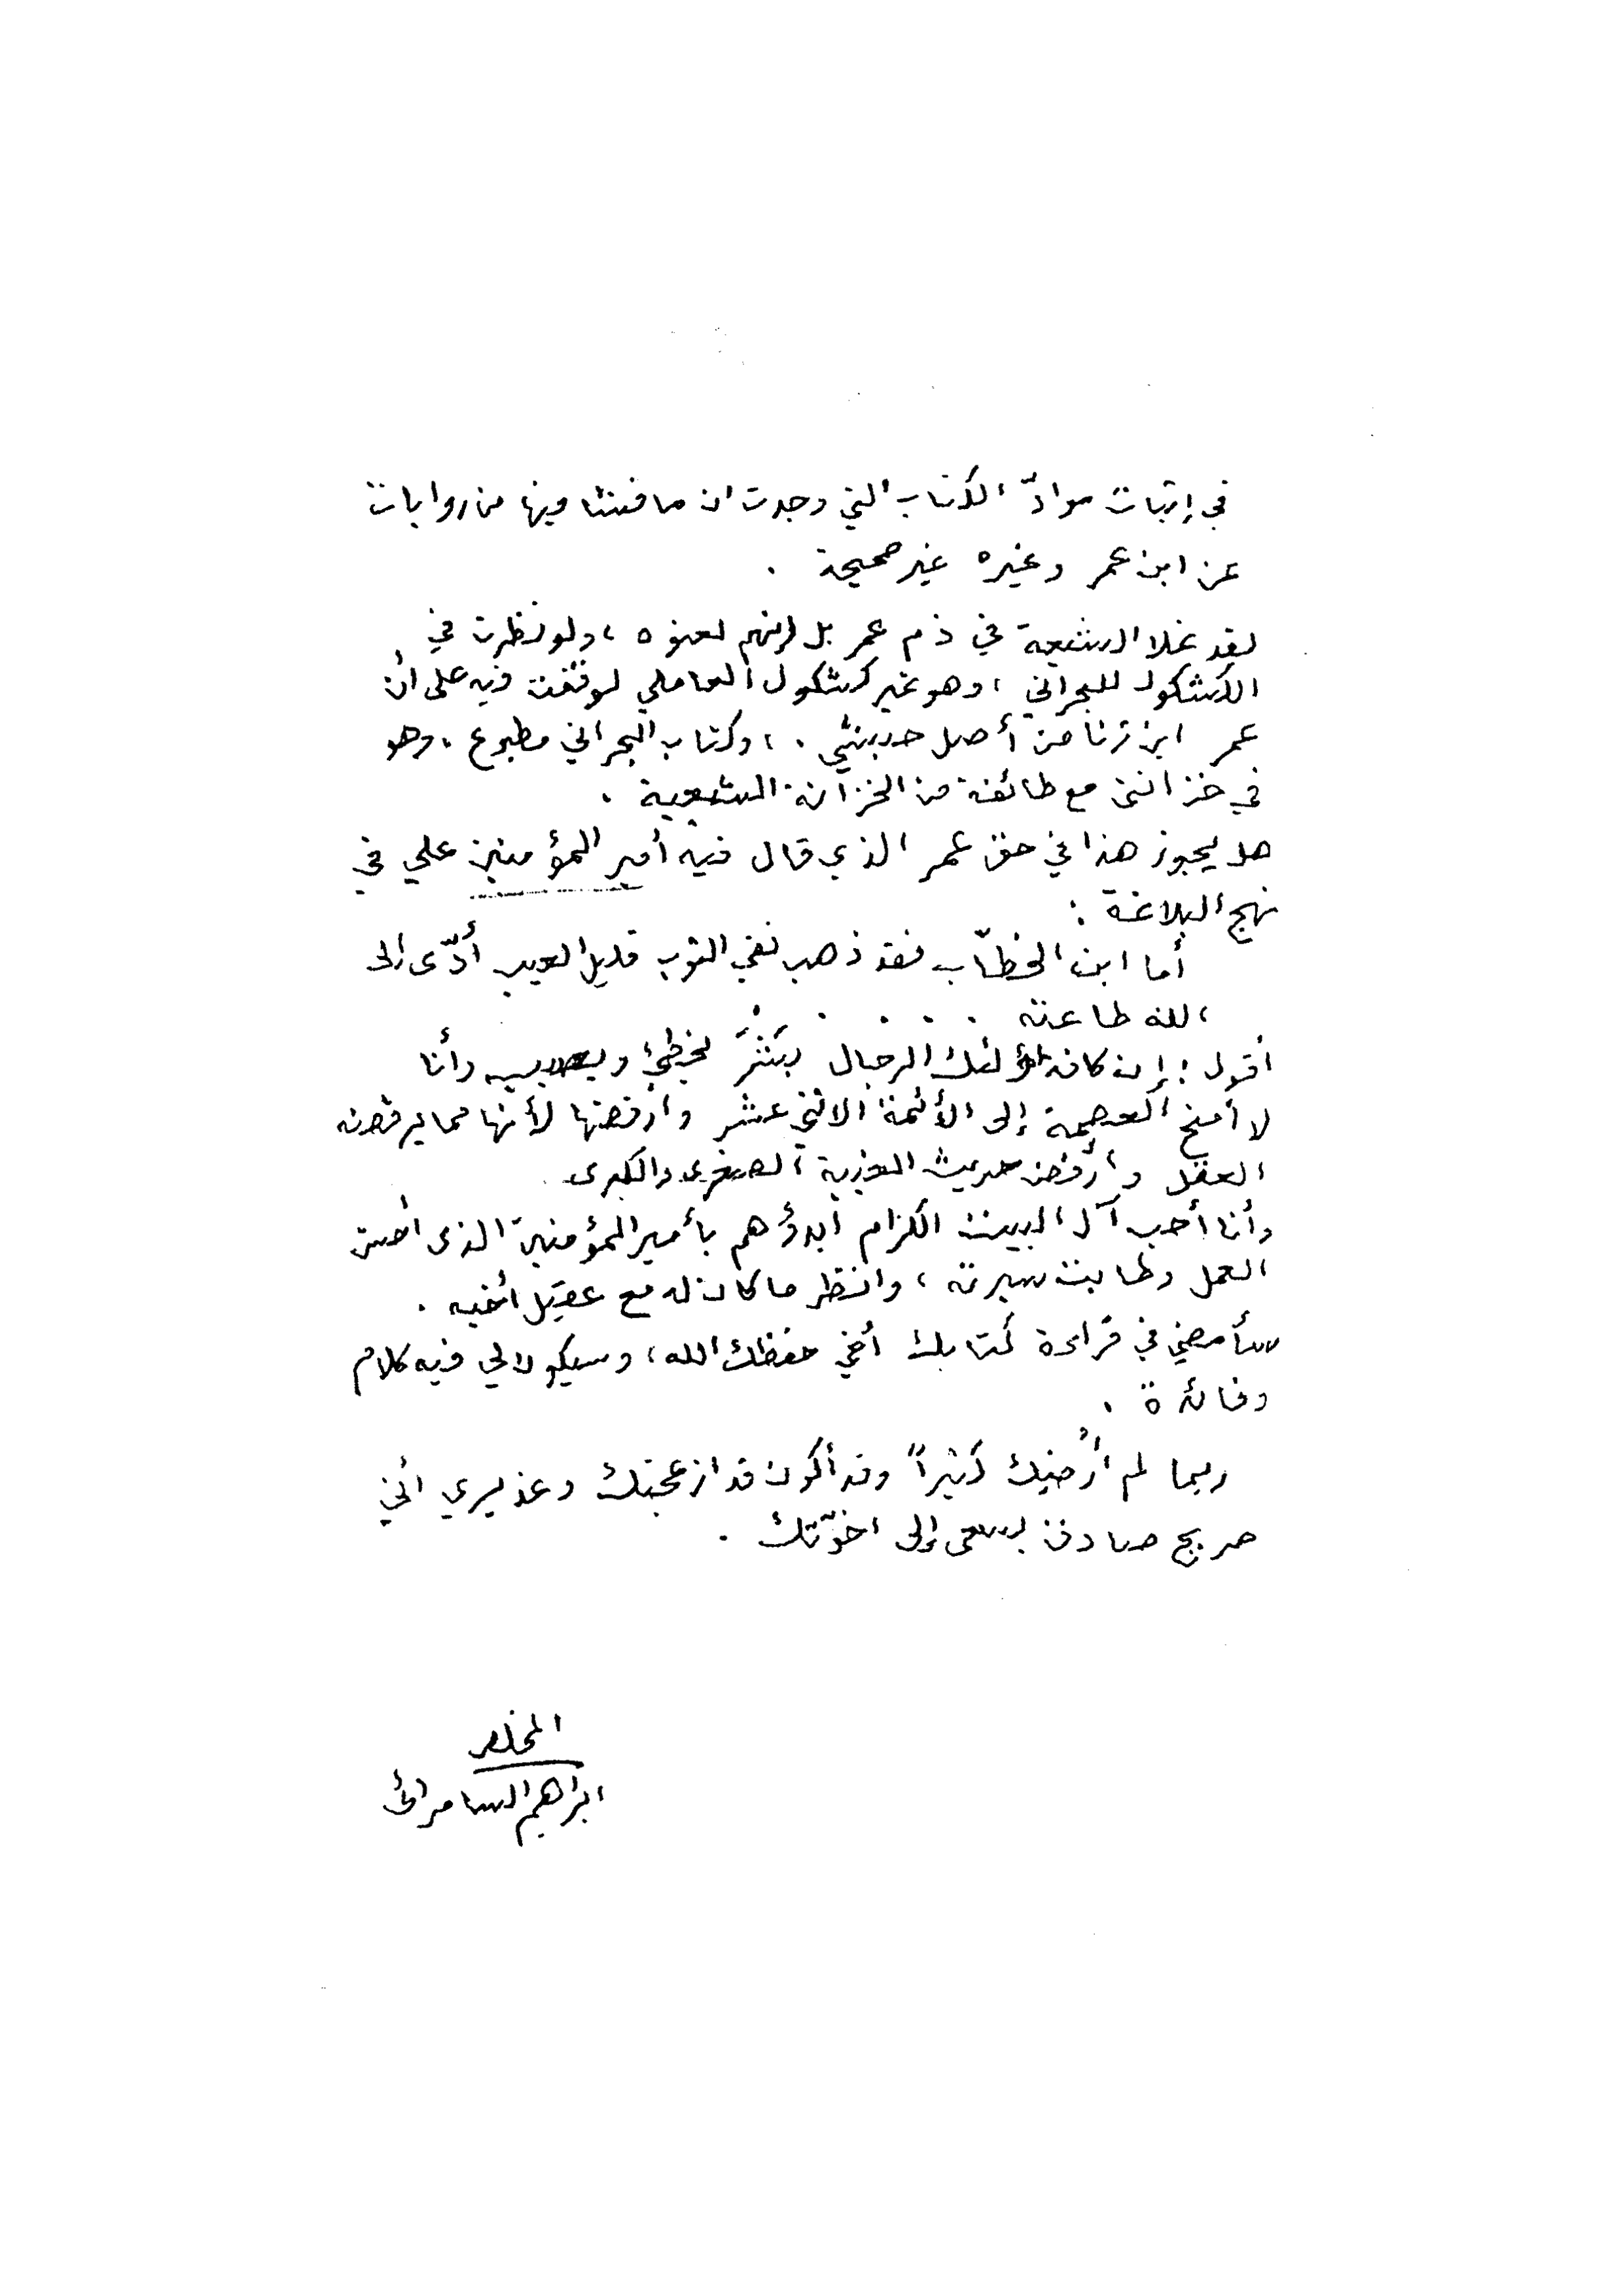 في إثبات موادّ الكتاب التي وجدت ان ما فيها من روايات
عن ابن عمر وغيره غير صحيحة .
لقد غلا الشيعة في ذم عمر بل إنهم لعنوه ، ولو نظرت في
الكشكول للبحراني ، وهو غير كشكول العاملي لوقفت فيه على أن
عمر ابن زنا من أصل حبشي . ، وكتاب البحراني مطبوع ، وهو
في خزانتي مع طائفة من الخزانة الشيعية .
هل يجوز هذا في حق عمر الذي قال فيه أمير المؤمنين علي في
نهج البلاغة :
أما ابن الخطّاب فقد ذهب نقي الثوب قليل العيب أدّى إلى
الله طاعته . . . . .
أقول : إن كان أولئك الرجال بَشَرٌ يخطئ ويصيب وأنا
لا أمنح العصمة إلى الأئمة الاثني عشر وأرفضها لأنها مما يرفضه
العقل وأرفض حديث الغيبة الصغرى والكبرى .
وأنا أحب آل البيت الكرام أبدؤهم بأمير المؤمنين الذي أحسن
العمل وطابت سيرته ، وانظر ما كان له مع عقيل أخيه .
سأمضي في قراءة كتابك أخي حفظك الله ، وسيكون لي فيه كلام
وفائدة .
ربما لم أُرضيك كثيراً وقد أكون قد ازعجتك وعذيري أني
صريح صادق يسعى إلى اخوّتك .
المخلص
ابراهيم السامرائي